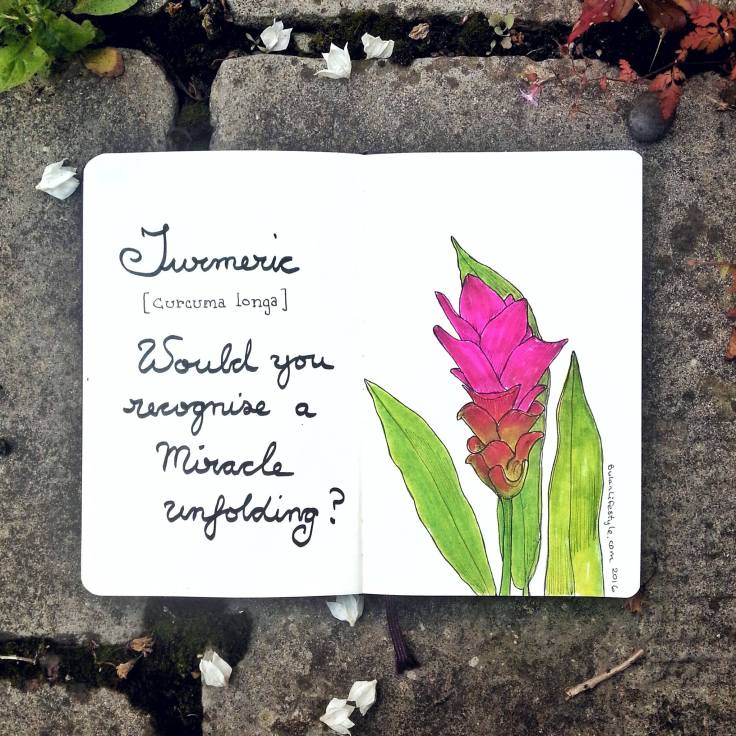 Turmeric
[Curcuma longa]
Would you
recognise a
Miracle
unfolding?
Bulanlifestyle.com 2016